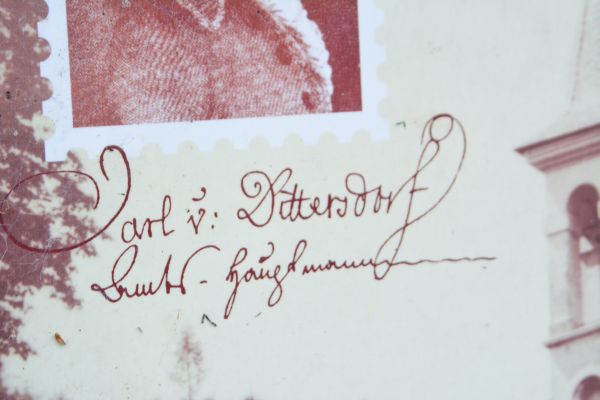 Carl v: Dittersdorf
Amts-Hauptmann